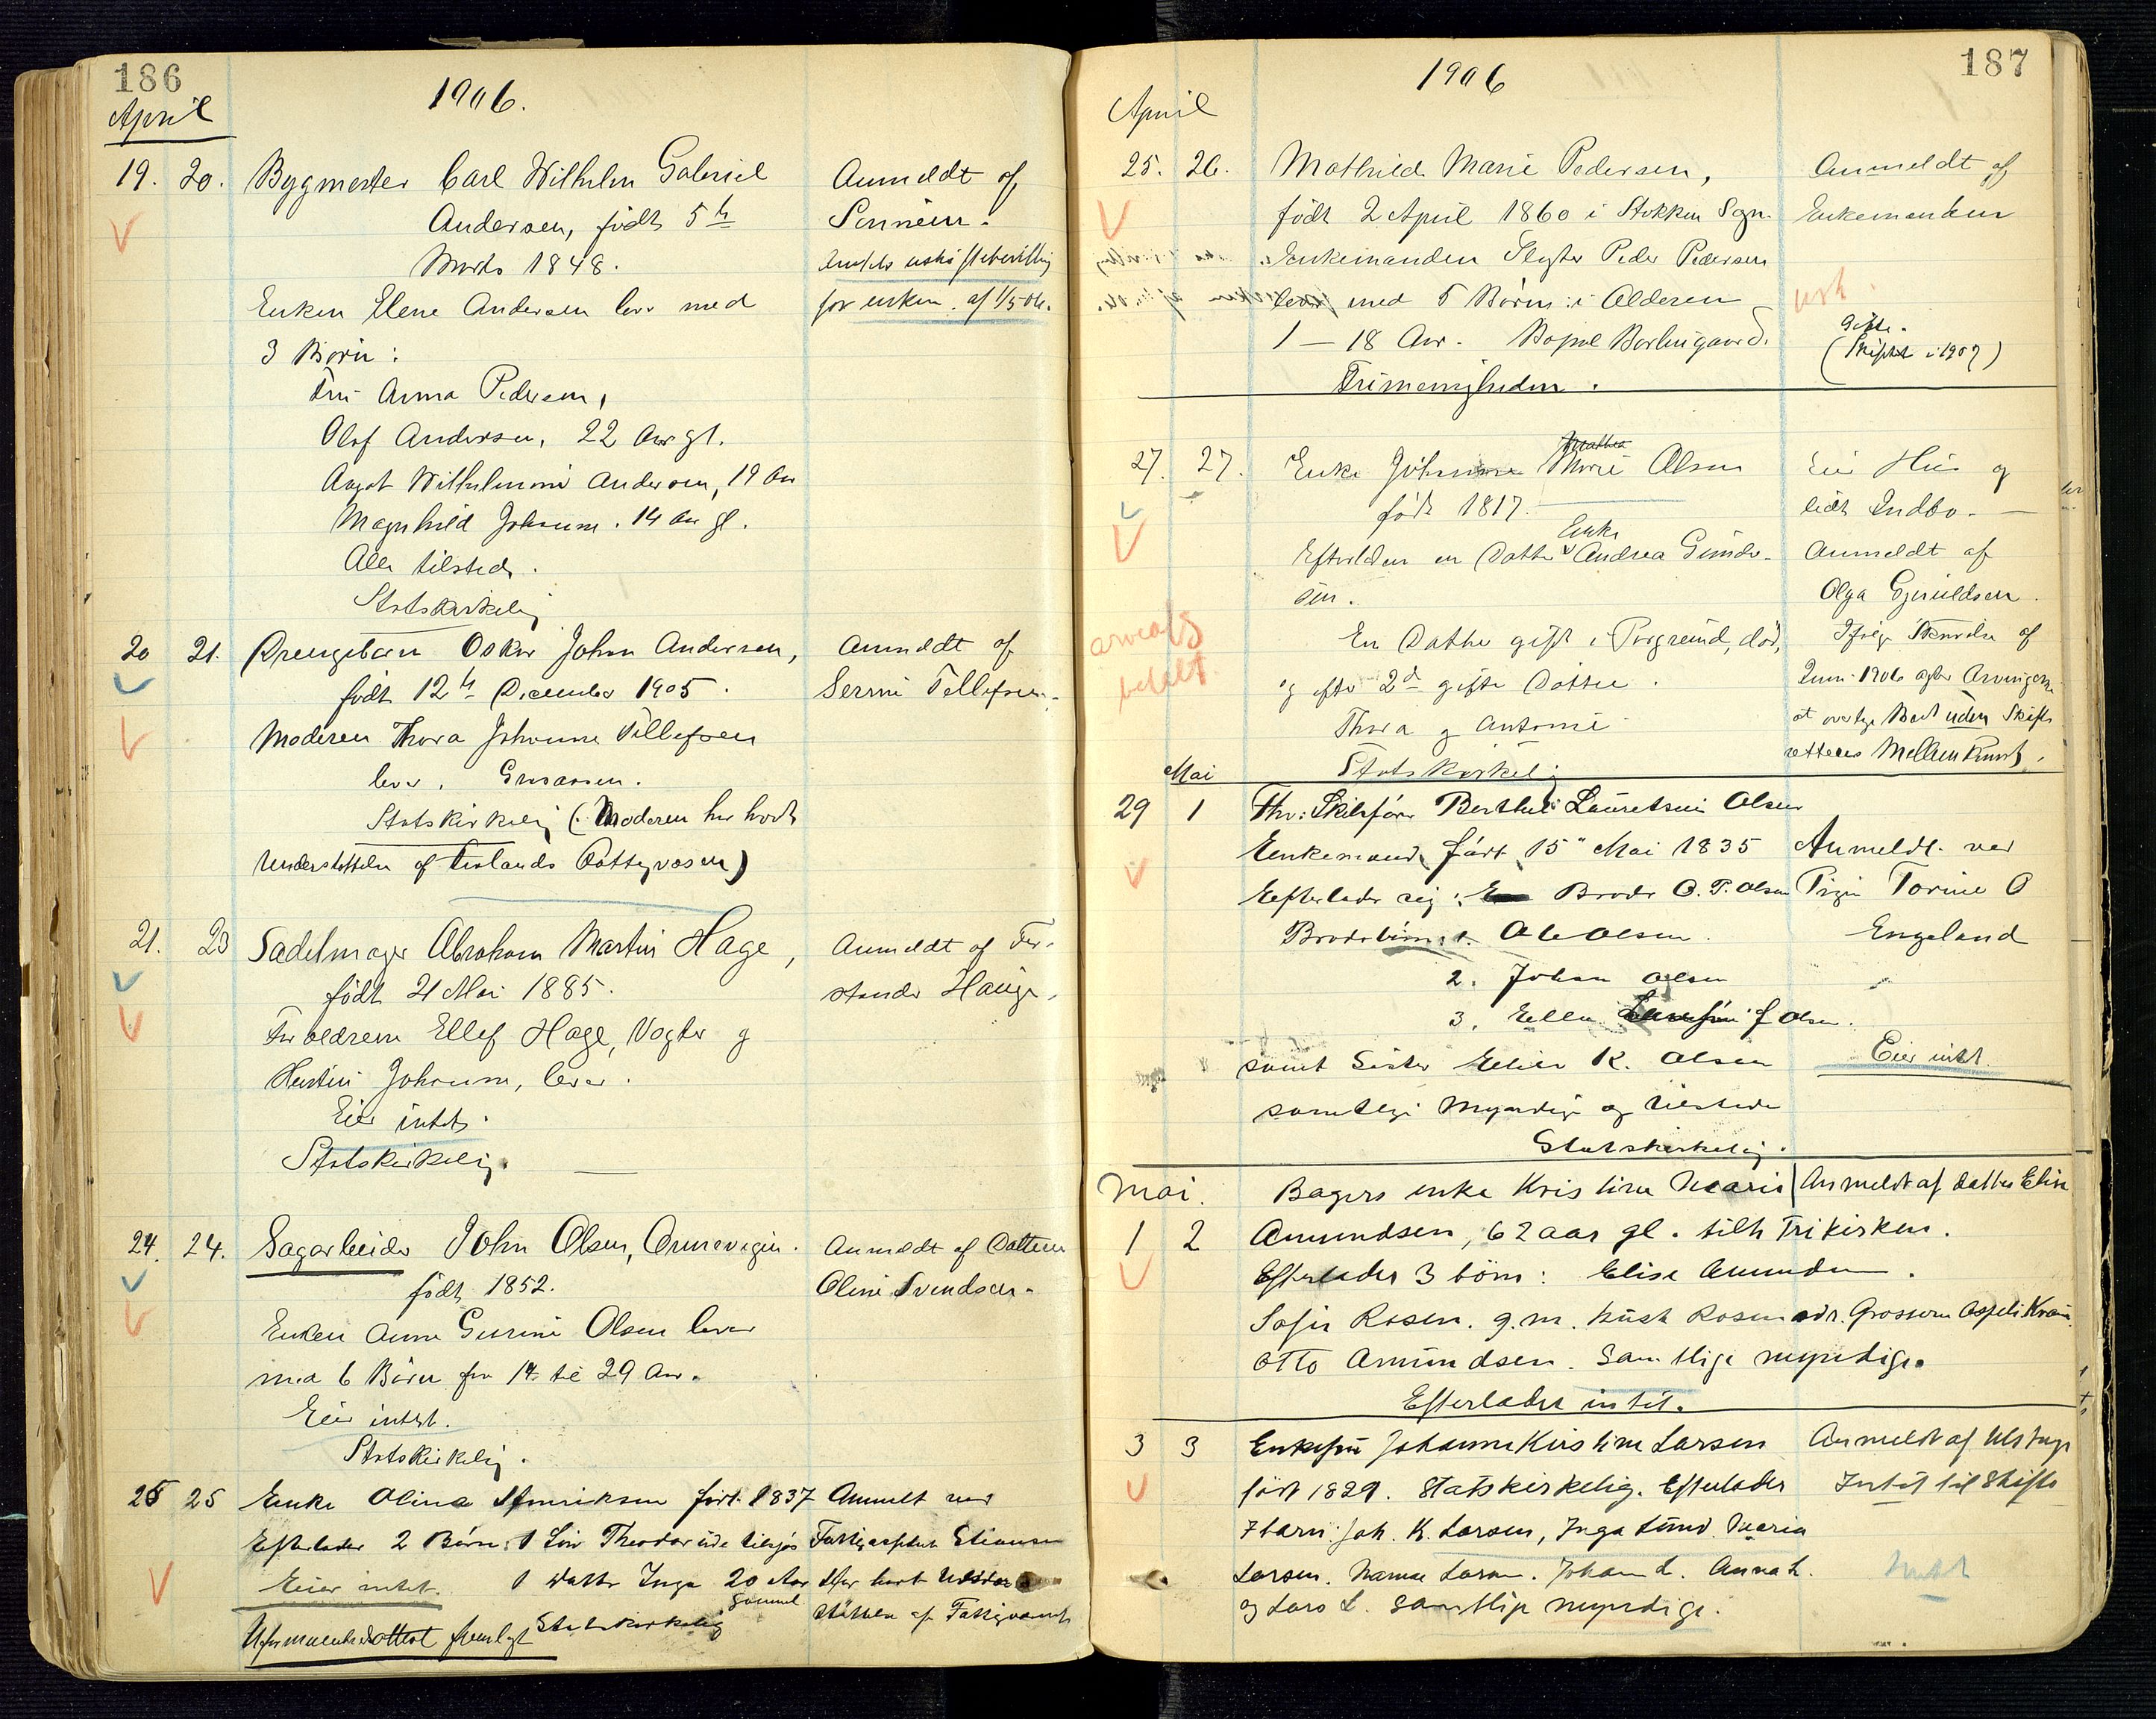 186
1906.
April
19. 20. Bygmester Carl Wilhelm Gabriel
Andersen, født 5te
Marts 1848.
Enken Elene Andersen lever med
3 Børn:
Fru Anna Pedersen,
Olaf Andersen, 22 Aar gl.
August Wilhelmine Andersen, 19 Aar
Magnhild Johanne. 14 Aar gl.
Alle tilstede.
Statskirkelig
Anmeldt af
Sønnen.
uskiftebevilling
for enken. af 1/5 06.
20 21. Drengebarn Oskar Johan Andersen,
født 12te December 1905.
Moderen Thora Johanne Tellefsen
lever.
Statskirkelig (Moderen har havt
Understøttelse af Fattigvæsen)
Anmeldt af
Tellefsen.
21. 23 Sadelmager Abraham Martin Hage,
født 21 Mai 1885.
Forældrene Ellef Hage, Vogter og
Hustru Johanne, lever.
Eier intet.
Statskirkelig.
Anmeldt af For-
stander Hauge.
24. 24. Sagarbeider John Olsen,
født 1852.
Enken Anne Gurine Olsen lever
med 6 Børn fra 14 til 29 Aar.
Eier intet.
Statskirkelig.
Anmeldt af Datteren
Oline Svendsen.
25 25 Enke Olina Henriksen født 1837
Efterlader 2 Børn: 1 Søn Theodor ude tilsjøs
Eier intet. 1 Datter Inga 20 Aar
gammel
fremlagt Statskirkelig
Anmelt ved
Har havt Understø
støttelse af Fattigvæsenet
187
1906
April
25. 26. Mathilde Marie Pedersen,
født 2 April 1860 i Stokken Sogn.
Enkemanden Slagter Peder Pedersen
lever med 5 Børn i Alderen
1 — 18 Aar. Bopæl
Frimenigheden.
Anmeldt af
Enkemanden
usk.
(Skiftet i 1907)
27. 27. Enke Johanne Mathea Marie Olsen
født 1817.
Efterlader en Datter Enke Andrea Gunder-
sen.
En Datter gift i Porsgrund, død,
og efter 2de gifte Døttre.
Thora og Antonie
Statskirkelig
Eier Hus og
lidt Indbo. —
Anmeldt af
Olga
Ifølge Skrivelse af
Juni 1906 agter Arvingerne
at overtage Boet uden Skifte
rettens Mellemkomst.
arveafg
betalt
Mai
29 1 Fhv: Skibsfører Berthel Lauretsius Olsen
Enkemand, født 15" Mai 1835
Eefterlader sig: Broder O. P. Olsen
Broderbørn: 1. Ole Olsen.
2. Johan Olsen
3. Ellen J Olsen.
samt Søster K. Olsen
samtlige Myndige og tilstede
Statskirkelig.
Anmeldt ved
Torine O
Engeland
Eier intet
Mai.
1 2 Bagers enke Kristine Maria
Amundsen, 62 aar gl. tilh Frikirken.
Efterlader 3 børn: Elise Amunds
Sofie Rosen. g.m. Aug Rosen adr. Grosserer Kran.
Otto Amundsen. Samtlige myndige.
Efterlader intet.
Anmeldt af datter Elise
3 3 Enkefru Johanne Kirstine Larsen
født 1829. Statskirkelig. Efterlader
7 barn: Joh. K. Larsen, Inga Lund, Maria
Larsen. Larsen. Johan L. Anna L.
og Lars L. Samtlige myndige.
Anmeldt af
Intet til Skifte
Intet